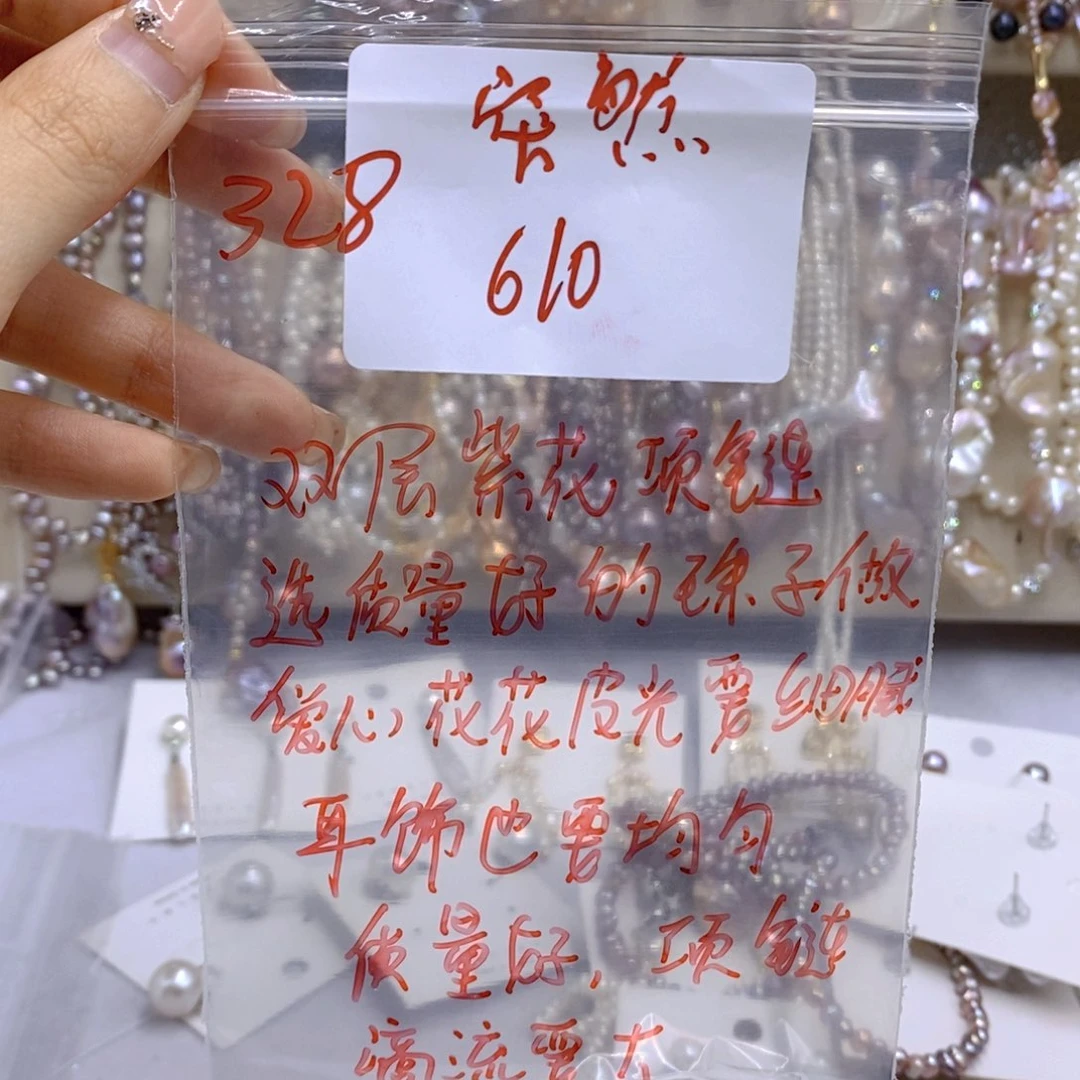 突然
328
610
双层紫花项链
选质量好的珠子做
爱心花花皮光要细腻
耳饰也要均匀
质量好,项链
滴流要大